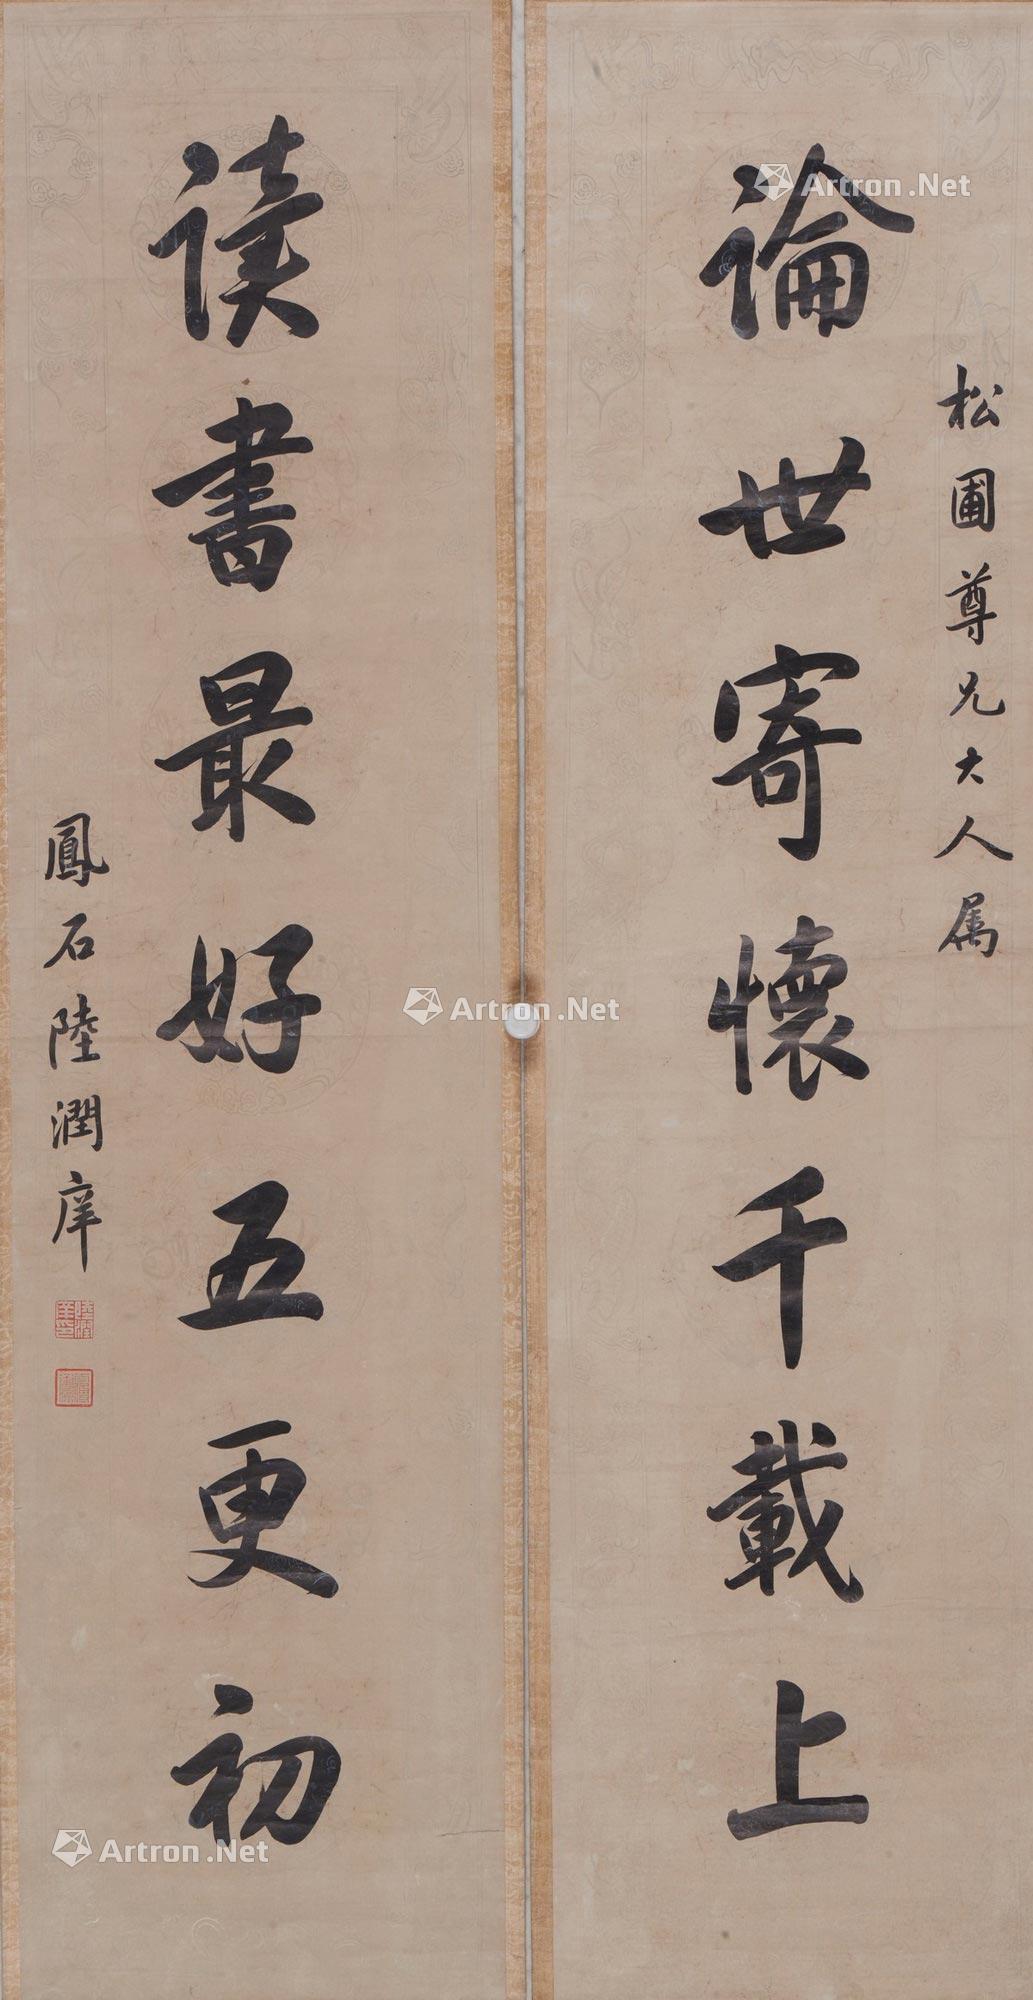 松圃尊兄大人属
論世寄懷千載上
读書最好五更初
鳳石陸潤庠
陸潤庠印
Artron.Net
Artron.Net
Artron.Net